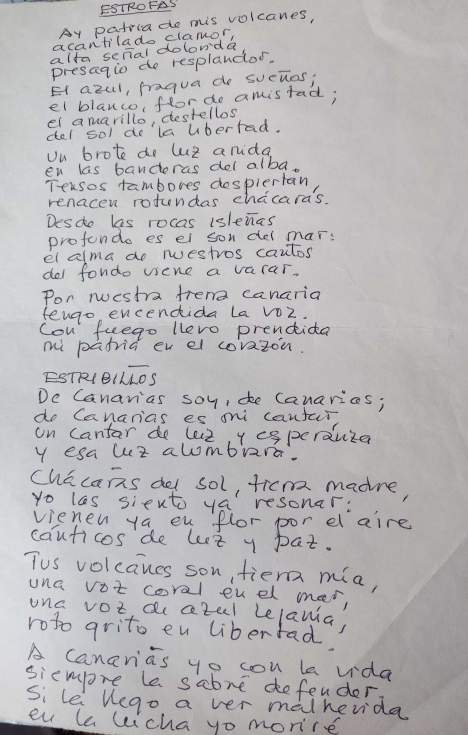 ESTROFAS
Ay patria de mis volcanes,
acantilado clamor,
alta señal dolorida,
presagio de resplandor.
El azul, fragua de sueños;
el blanco, flor de amistad;
el amarillo, destellos
del sol de la libertad.
Un brote de luz anida
en las banderas del alba.
Tensos tambores despiertan,
renacen rotundas chácaras.
Desde las rocas isleñas
profundo es el son del mar:
el alma de nuestros cantos
del fondo viene a varar.
Por nuestra tierra canaria
tengo encendida la voz.
Con fuego llevo prendida
mi patria en el corazón.
ESTRIBILLOS
De Canarias soy, de Canarias;
de Canarias es mi cantar,
un cantar de luz y esperanza
y esa luz alumbrará.
Chácaras del sol, tierra madre,
yo las siento ya resonar:
vienen ya en flor por el aire
cánticos de luz y paz.
Tus volcanes son, tierra mía,
una voz coral en el mar,
una voz de azul lejanía,
roto grito en libertad.
A Canarias yo con la vida
siempre la sabré defender.
Si la llego a ver malherida
en la lucha yo moriré